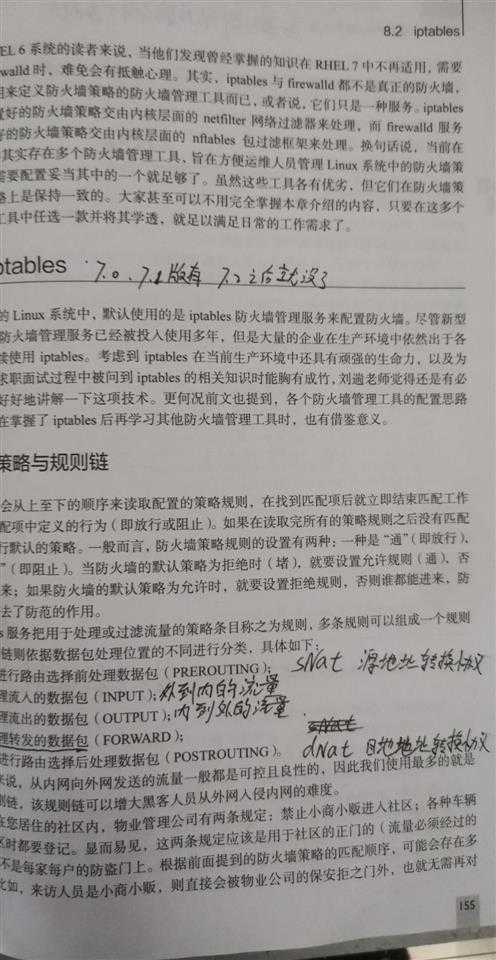 8.2 iptables
EL 6 系统的读者来说，当他们发现曾经掌握的知识在 RHEL 7 中不再适用，需要
walld 时，难免会有抵触心理。其实，iptables 与 firewalld 都不是真正的防火墙，
用来定义防火墙策略的防火墙管理工具而已，或者说，它们只是一种服务。iptables
置好的防火墙策略交由内核层面的 netfilter 网络过滤器来处理，而 firewalld 服务
好的防火墙策略交由内核层面的 nftables 包过滤框架来处理。换句话说，当前在
其实存在多个防火墙管理工具，旨在方便运维人员管理 Linux 系统中的防火墙策
需要配置妥当其中的一个就足够了。虽然这些工具各有优劣，但它们在防火墙策
路上是保持一致的。大家甚至可以不用完全掌握本章介绍的内容，只要在这多个
工具中任选一款并将其学透，就足以满足日常的工作需求了。
ptables 7.0、7.1版有 7.2之后就没了
的 Linux 系统中，默认使用的是 iptables 防火墙管理服务来配置防火墙。尽管新型
防火墙管理服务已经被投入使用多年，但是大量的企业在生产环境中依然出于各
续使用 iptables。考虑到 iptables 在当前生产环境中还具有顽强的生命力，以及为
求职面试过程中被问到 iptables 的相关知识时能胸有成竹，刘遄老师觉得还是有必
好好地讲解一下这项技术。更何况前文也提到，各个防火墙管理工具的配置思路
在掌握了 iptables 后再学习其他防火墙管理工具时，也有借鉴意义。
策略与规则链
会从上至下的顺序来读取配置的策略规则，在找到匹配项后就立即结束匹配工作
配项中定义的行为（即放行或阻止）。如果在读取完所有的策略规则之后没有匹配
行默认的策略。一般而言，防火墙策略规则的设置有两种：一种是“通”（即放行），
”（即阻止）。当防火墙的默认策略为拒绝时（堵），就要设置允许规则（通），否
来；如果防火墙的默认策略为允许时，就要设置拒绝规则，否则谁都能进来，防
去了防范的作用。
s 服务把用于处理或过滤流量的策略条目称之为规则，多条规则可以组成一个规则
链则依据数据包处理位置的不同进行分类，具体如下：
进行路由选择前处理数据包（PREROUTING）； sNat 源地址转换协议
理流入的数据包（INPUT）；外到内的流量
理流出的数据包（OUTPUT）；内到外的流量
理转发的数据包（FORWARD）；
进行路由选择后处理数据包（POSTROUTING）。 dNat 目地地址转换协议
来说，从内网向外网发送的流量一般都是可控且良性的，因此我们使用最多的就是
则链，该规则链可以增大黑客人员从外网入侵内网的难度。
在您居住的社区内，物业管理公司有两条规定：禁止小商小贩进入社区；各种车辆
区时都要登记。显而易见，这两条规定应该是用于社区的正门的（流量必须经过的
不是每家每户的防盗门上。根据前面提到的防火墙策略的匹配顺序，可能会存在多
比如，来访人员是小商小贩，则直接会被物业公司的保安拒之门外，也就无需再对
155